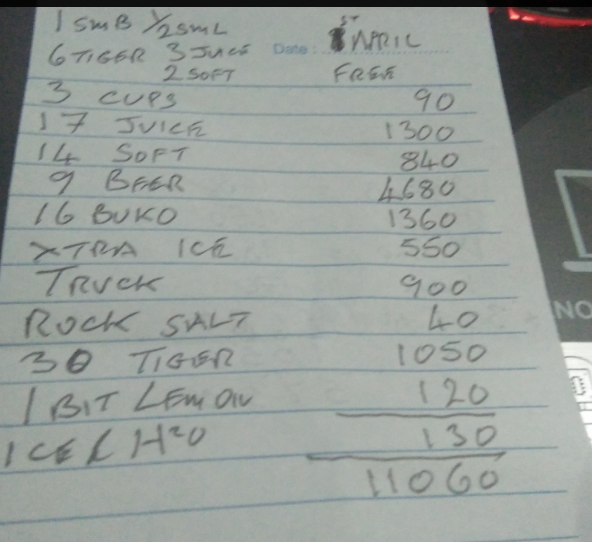 1 SMB 1/2 SML ST
6 TIGER 3 JUICE Date: 1 APRIL
2 SOFT FREE
3 CUPS 90
17 JUICE 1300
14 SOFT 840
9 BEER 4680
16 BUKO 1360
XTRA ICE 550
TRUCK 900
ROCK SALT 40
30 TIGER 1050
1 BIT LEMON 120
ICE / H2O 130
11060
NO